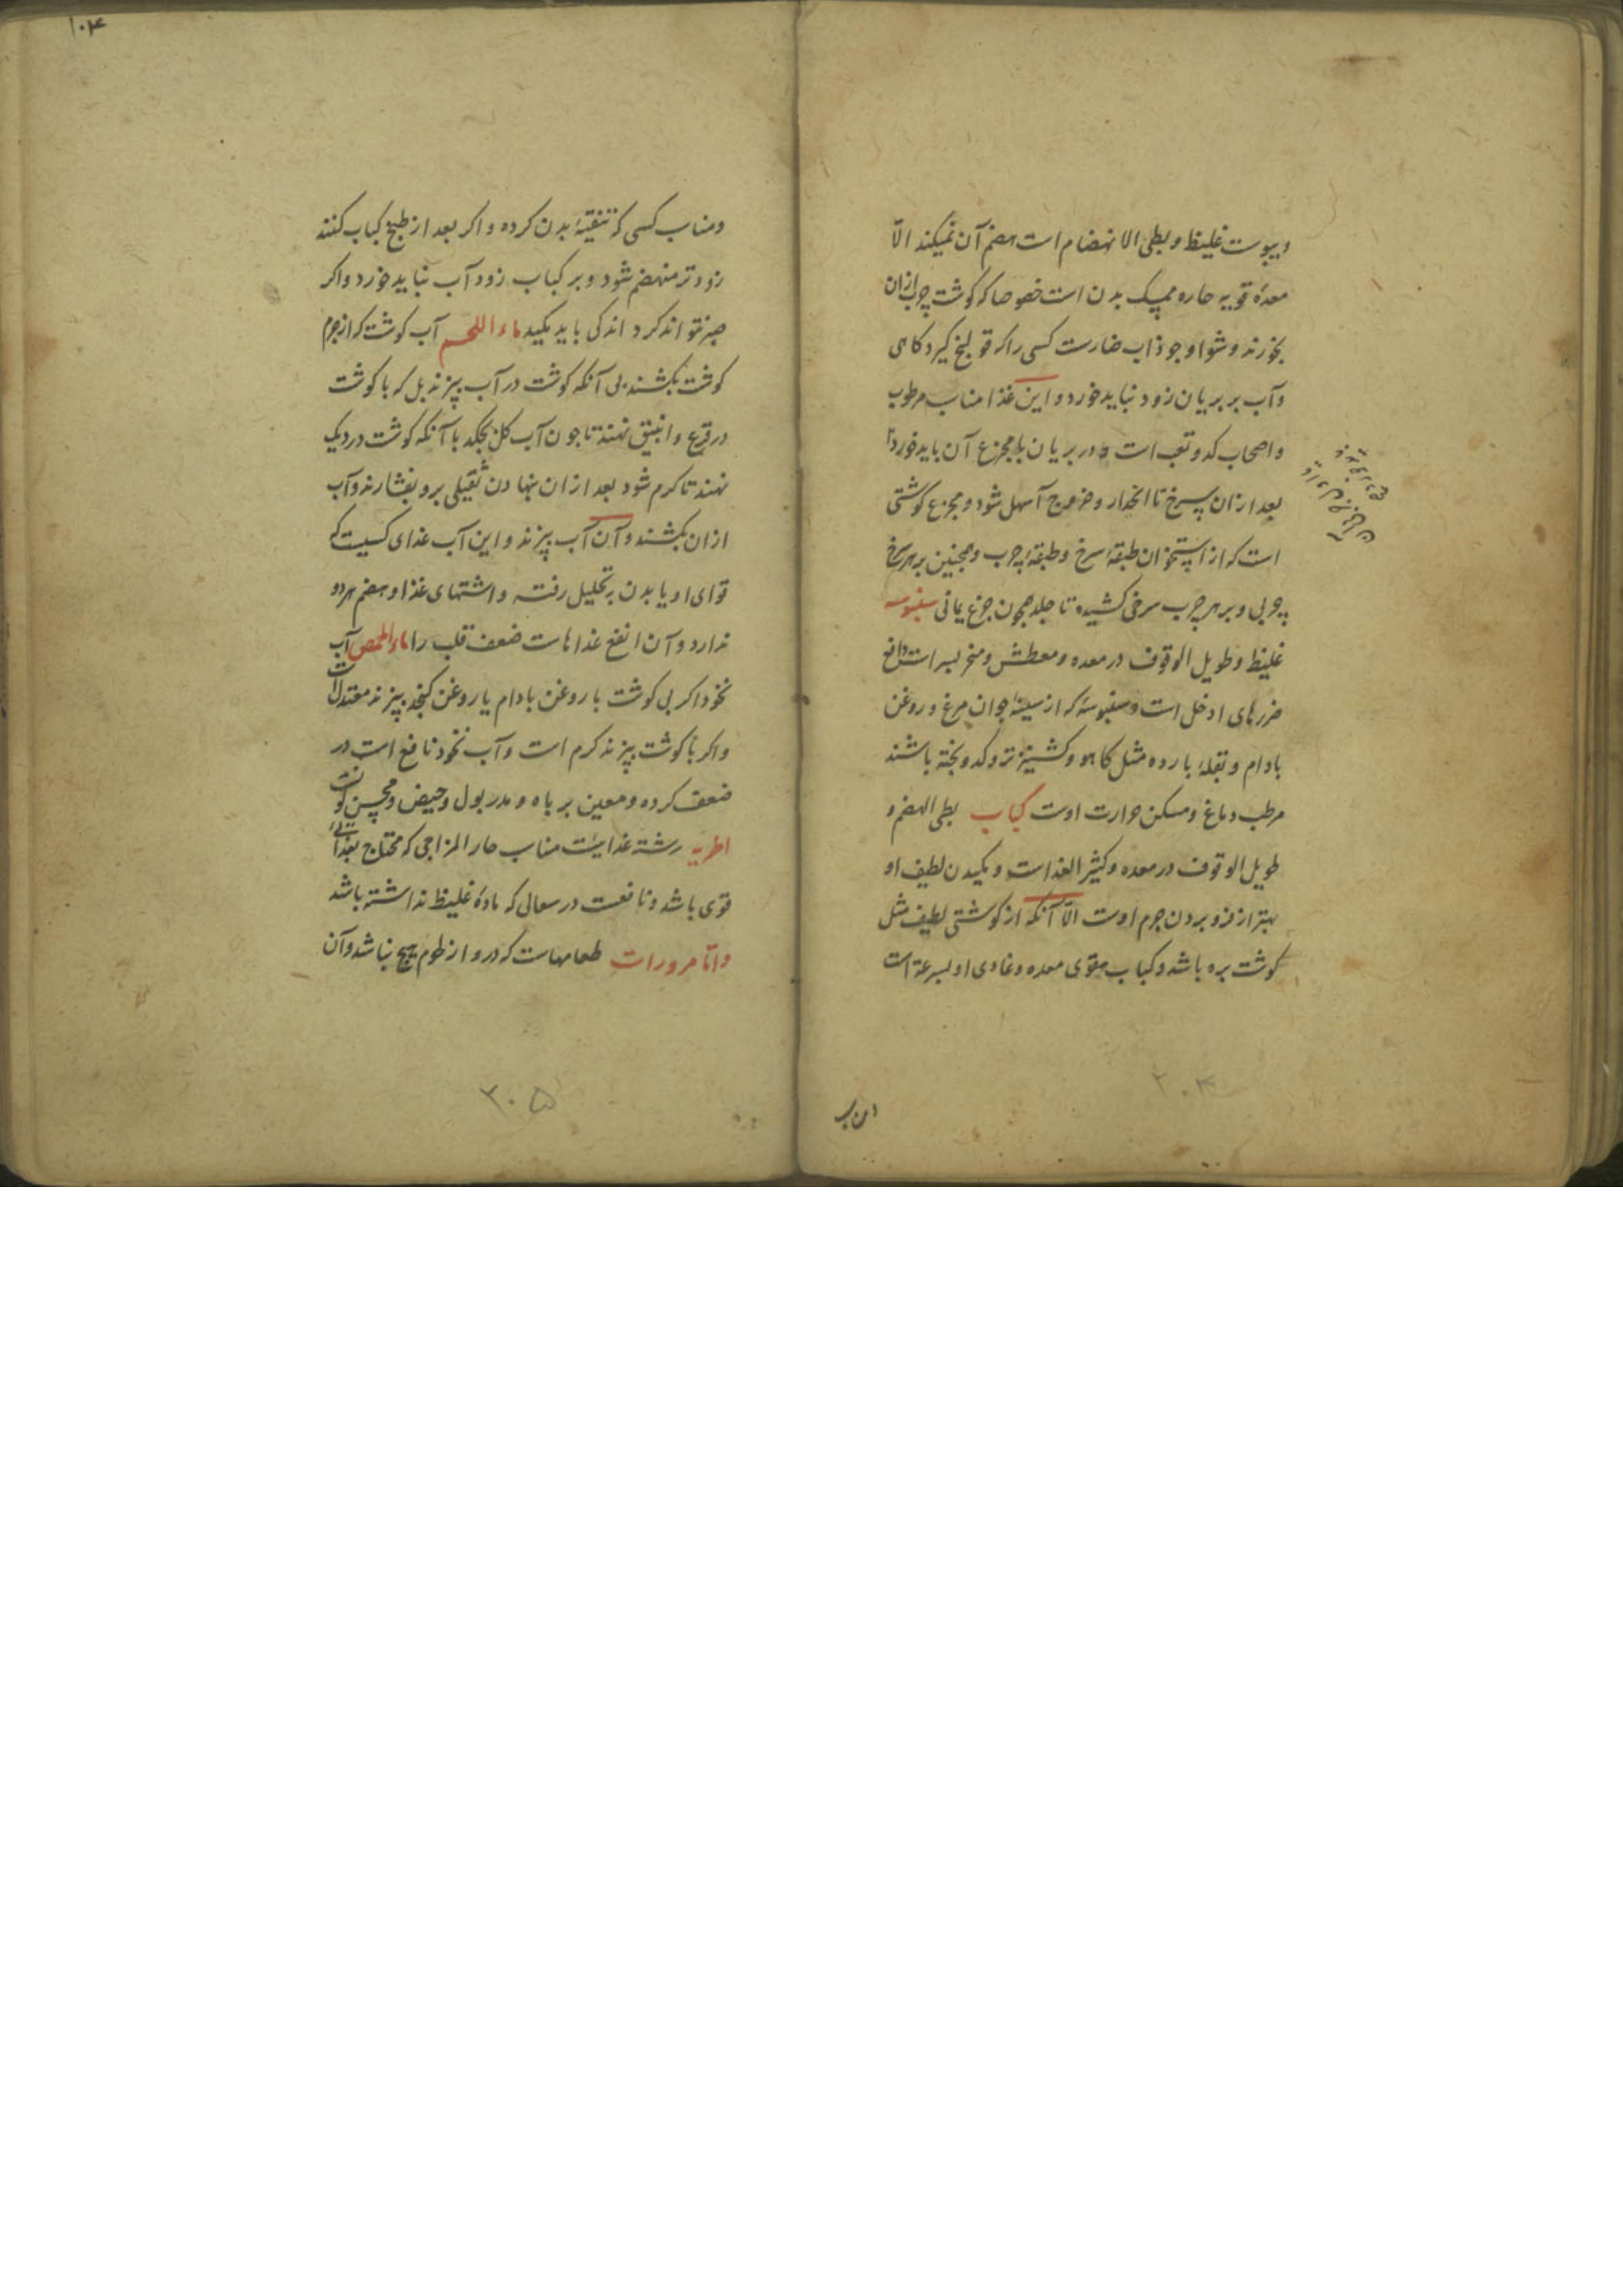 ویبوست غلیظ و بطی الانهضام است هضم آن نمیکند الّا
معدهٔ قویه حاره ممسک بدن است خصوصا که کوشت چرب ازان
بخورند و شوا و جوذاب ضارست کسی را که قولنج کیرد کاهی
وآب بر بریان زود نباید خورد و این غذا مناسب مرطوب
واصحاب کد و تعب است و در بریان با مجزع آن باید خورد تا
بعد ازان سرخ تا انحدار و خروج آسهل شود و مجزع کوشتی
است که از استخوان طبقهٔ سرخ و طبقهٔ چرب و همچنین بر هر سرخ
چربی و بر هر چرب سرخی کشیده تا جلد همچون جزع یمانی سنبوسه
غلیظ و طویل الوقوف در معده و معطش و منحر بسر است دافع
ضررهای او خل است و سنبوسهٔ که از سینهٔ جوان مرغ و روغن
بادام و بقلهٔ بارده مثل کاهو و کشنیز تر و کدو پخته باشند
مرطب دماغ و مسکن حرارت اوست کباب بطی الهضم و
طویل الوقوف در معده و کثیر الغذاست و مکیدن لطیف او
بهتر از فرو بردن جرم اوست الّا آنکه از کوشتی لطیف مثل
کوشت بره باشد و کباب مقوی معده و غاذی او بسرعة است
۲۰۴
ومناسب کسی که تنقیهٔ بدن کرده و اکر بعد از طبخ کباب کنند
زودتر منهضم شود و بر کباب زود آب نباید خورد واکر
صبر نتواند کرد اندکی باید مکید ماء اللحم آب کوشت که از جرم
کوشت بکشند بی آنکه کوشت در آب پزند بل که با کوشت
در قرع وانبیق نهند تا چون آب کل بچکد یا آنکه کوشت در دیک
نهند تا کرم شود بعد ازان بنهادن ثقیلی برو بفشارند وآب
ازان بکشند و آن آب پزند و این آب غذای کسیست که
قوای او یا بدن بتحلیل رفته و اشتهای غذا و هضم هر دو
ندارد و آن انفع غذاهاست ضعف قلب را ماء الحمص آب
نخود اکر بی کوشت با روغن بادام یا روغن کنجد پزند معتدل است
واکر با کوشت پزند کرم است وآب نخود نافع است در
ضعف کرده و معین بر باه و مدر بول و حیض و محسن لونست
اطریه رشته غذائیست مناسب حار المزاجی که محتاج بغذائی
قوی باشد و نافعست در سعالی که مادهٔ غلیظ نداشته باشد
وامّا مزورات طعامهاست که درو از لحوم هیچ نباشد وآن
۲۰۵
۱۰۴